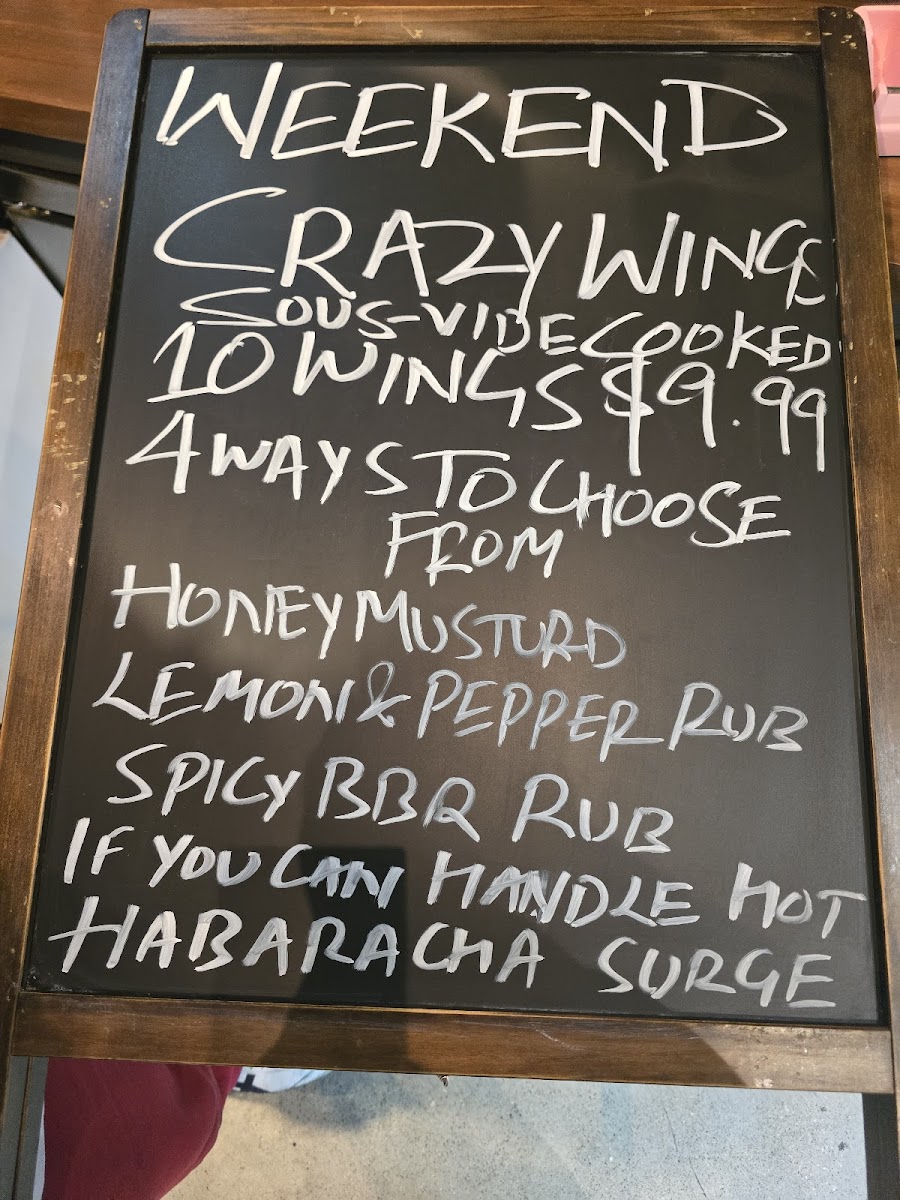 WEEKEND
CRAZY WINGS
SOUS-VIDE COOKED
10 WINGS $9.99
4 WAYS TO CHOOSE
FROM
HONEY MUSTURD
LEMON & PEPPER RUB
SPICY BBQ RUB
IF YOU CAN HANDLE HOT
HABARACHA SURGE